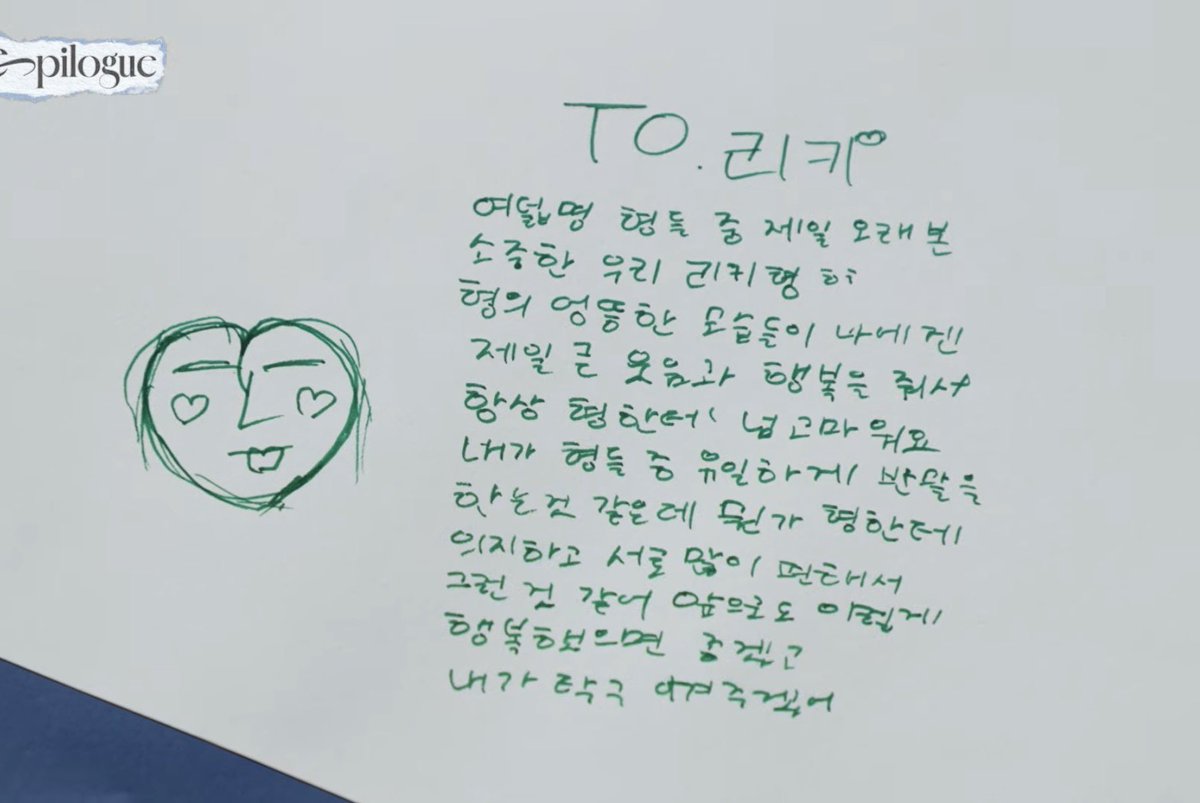 Epilogue
TO. 리키♡
여덟명 형들 중 제일 오래본
소중한 우리 리키형 ㅎㅎ
형의 엉뚱한 모습들이 나에겐
제일 큰 웃음과 행복을 줘서
항상 형한테 넘 고마워요
내가 형들 중 유일하게 반말을
하는것 같은데 뭔가 형한테
의지하고 서로 많이 편해서
그런 것 같어 앞으로도 이렇게
행복했으면 좋겠고
내가 탁구 이겨주겠어